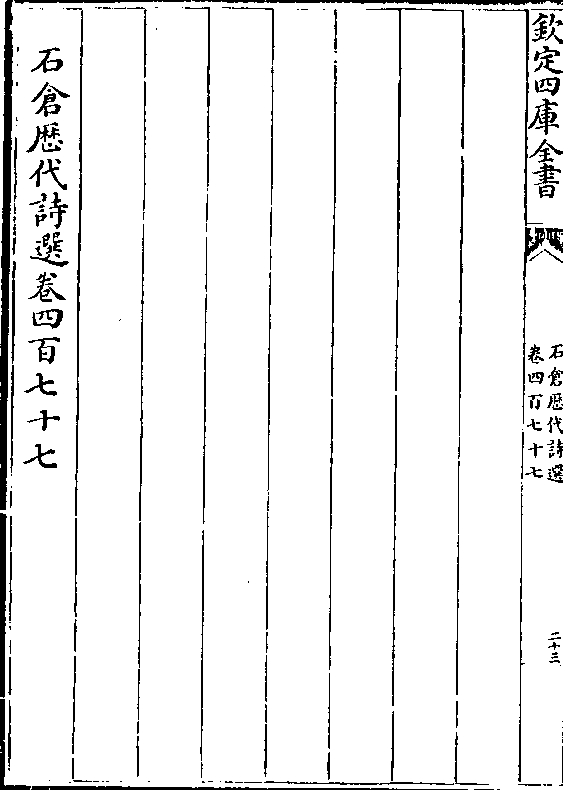 欽定四庫全書
石倉歴代詩選
卷四百七十七
二十三
石倉歴代詩選卷四百七十七